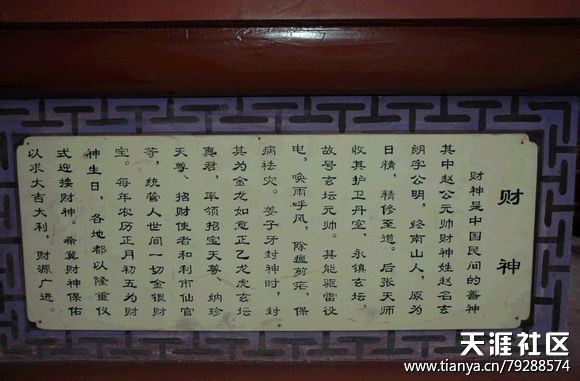 财神
财神是中国民间的善神
其中赵公元帅财神姓赵名玄
朗字公明，终南山人，原为
日精，精修至道。后张天师
收其护卫丹室，永镇玄坛，
故号玄坛元帅。其能驱雷役
电，唤雨呼风，除瘟剪疟，保
病祛灾。姜子牙封神时，封
其为金龙如意正乙龙虎玄坛
真君，率领招宝天尊、纳珍
天尊、招财使者和利市仙官
等，统管人世间一切金银财
宝。每年农历正月初五为财
神生日，各地都以隆重仪
式迎接财神。希冀财神保佑
以求大吉大利，财源广进。
天涯社区
www.tianya.cn/79288574